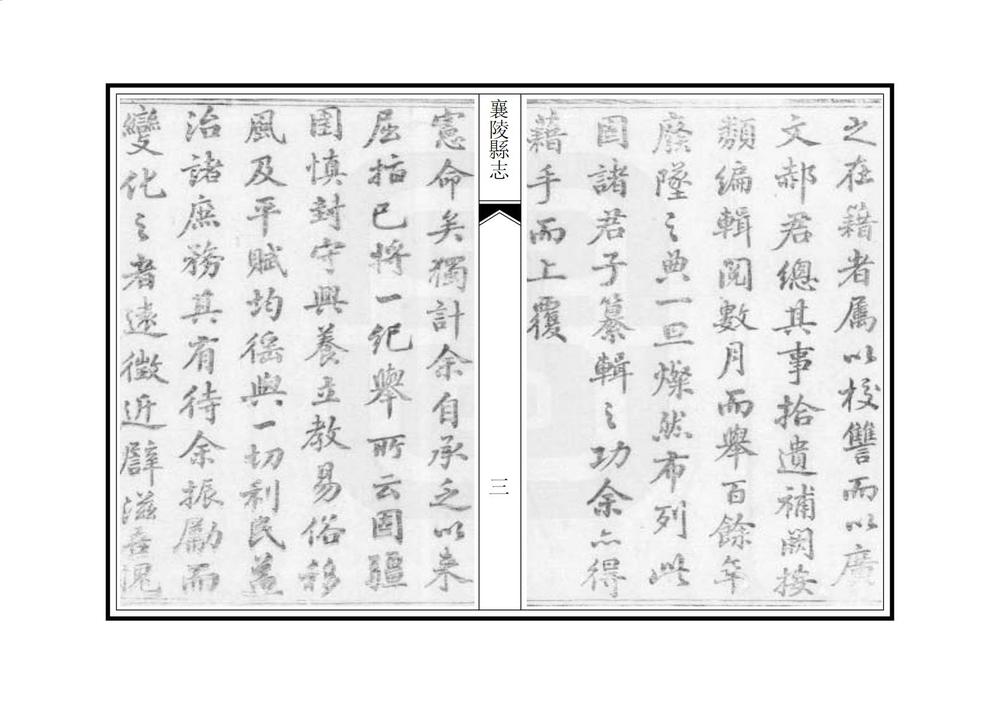 之在籍者属以校讐而以廣
文郝君總其事拾遺補闕按
類編輯閲數月而舉百餘年
廢墜之典一旦燦然布列此
固諸君子纂輯之功余亦得
藉手而上覆
襄陵縣志
三
憲命矣獨計余自承乏以来
屈指已将一紀舉所云固疆
圉慎封守興養立教易俗移
風及平賦均徭與一切利民益
治諸庶務其有待余振勵而
變化之者遠徵近譬滋吾愧